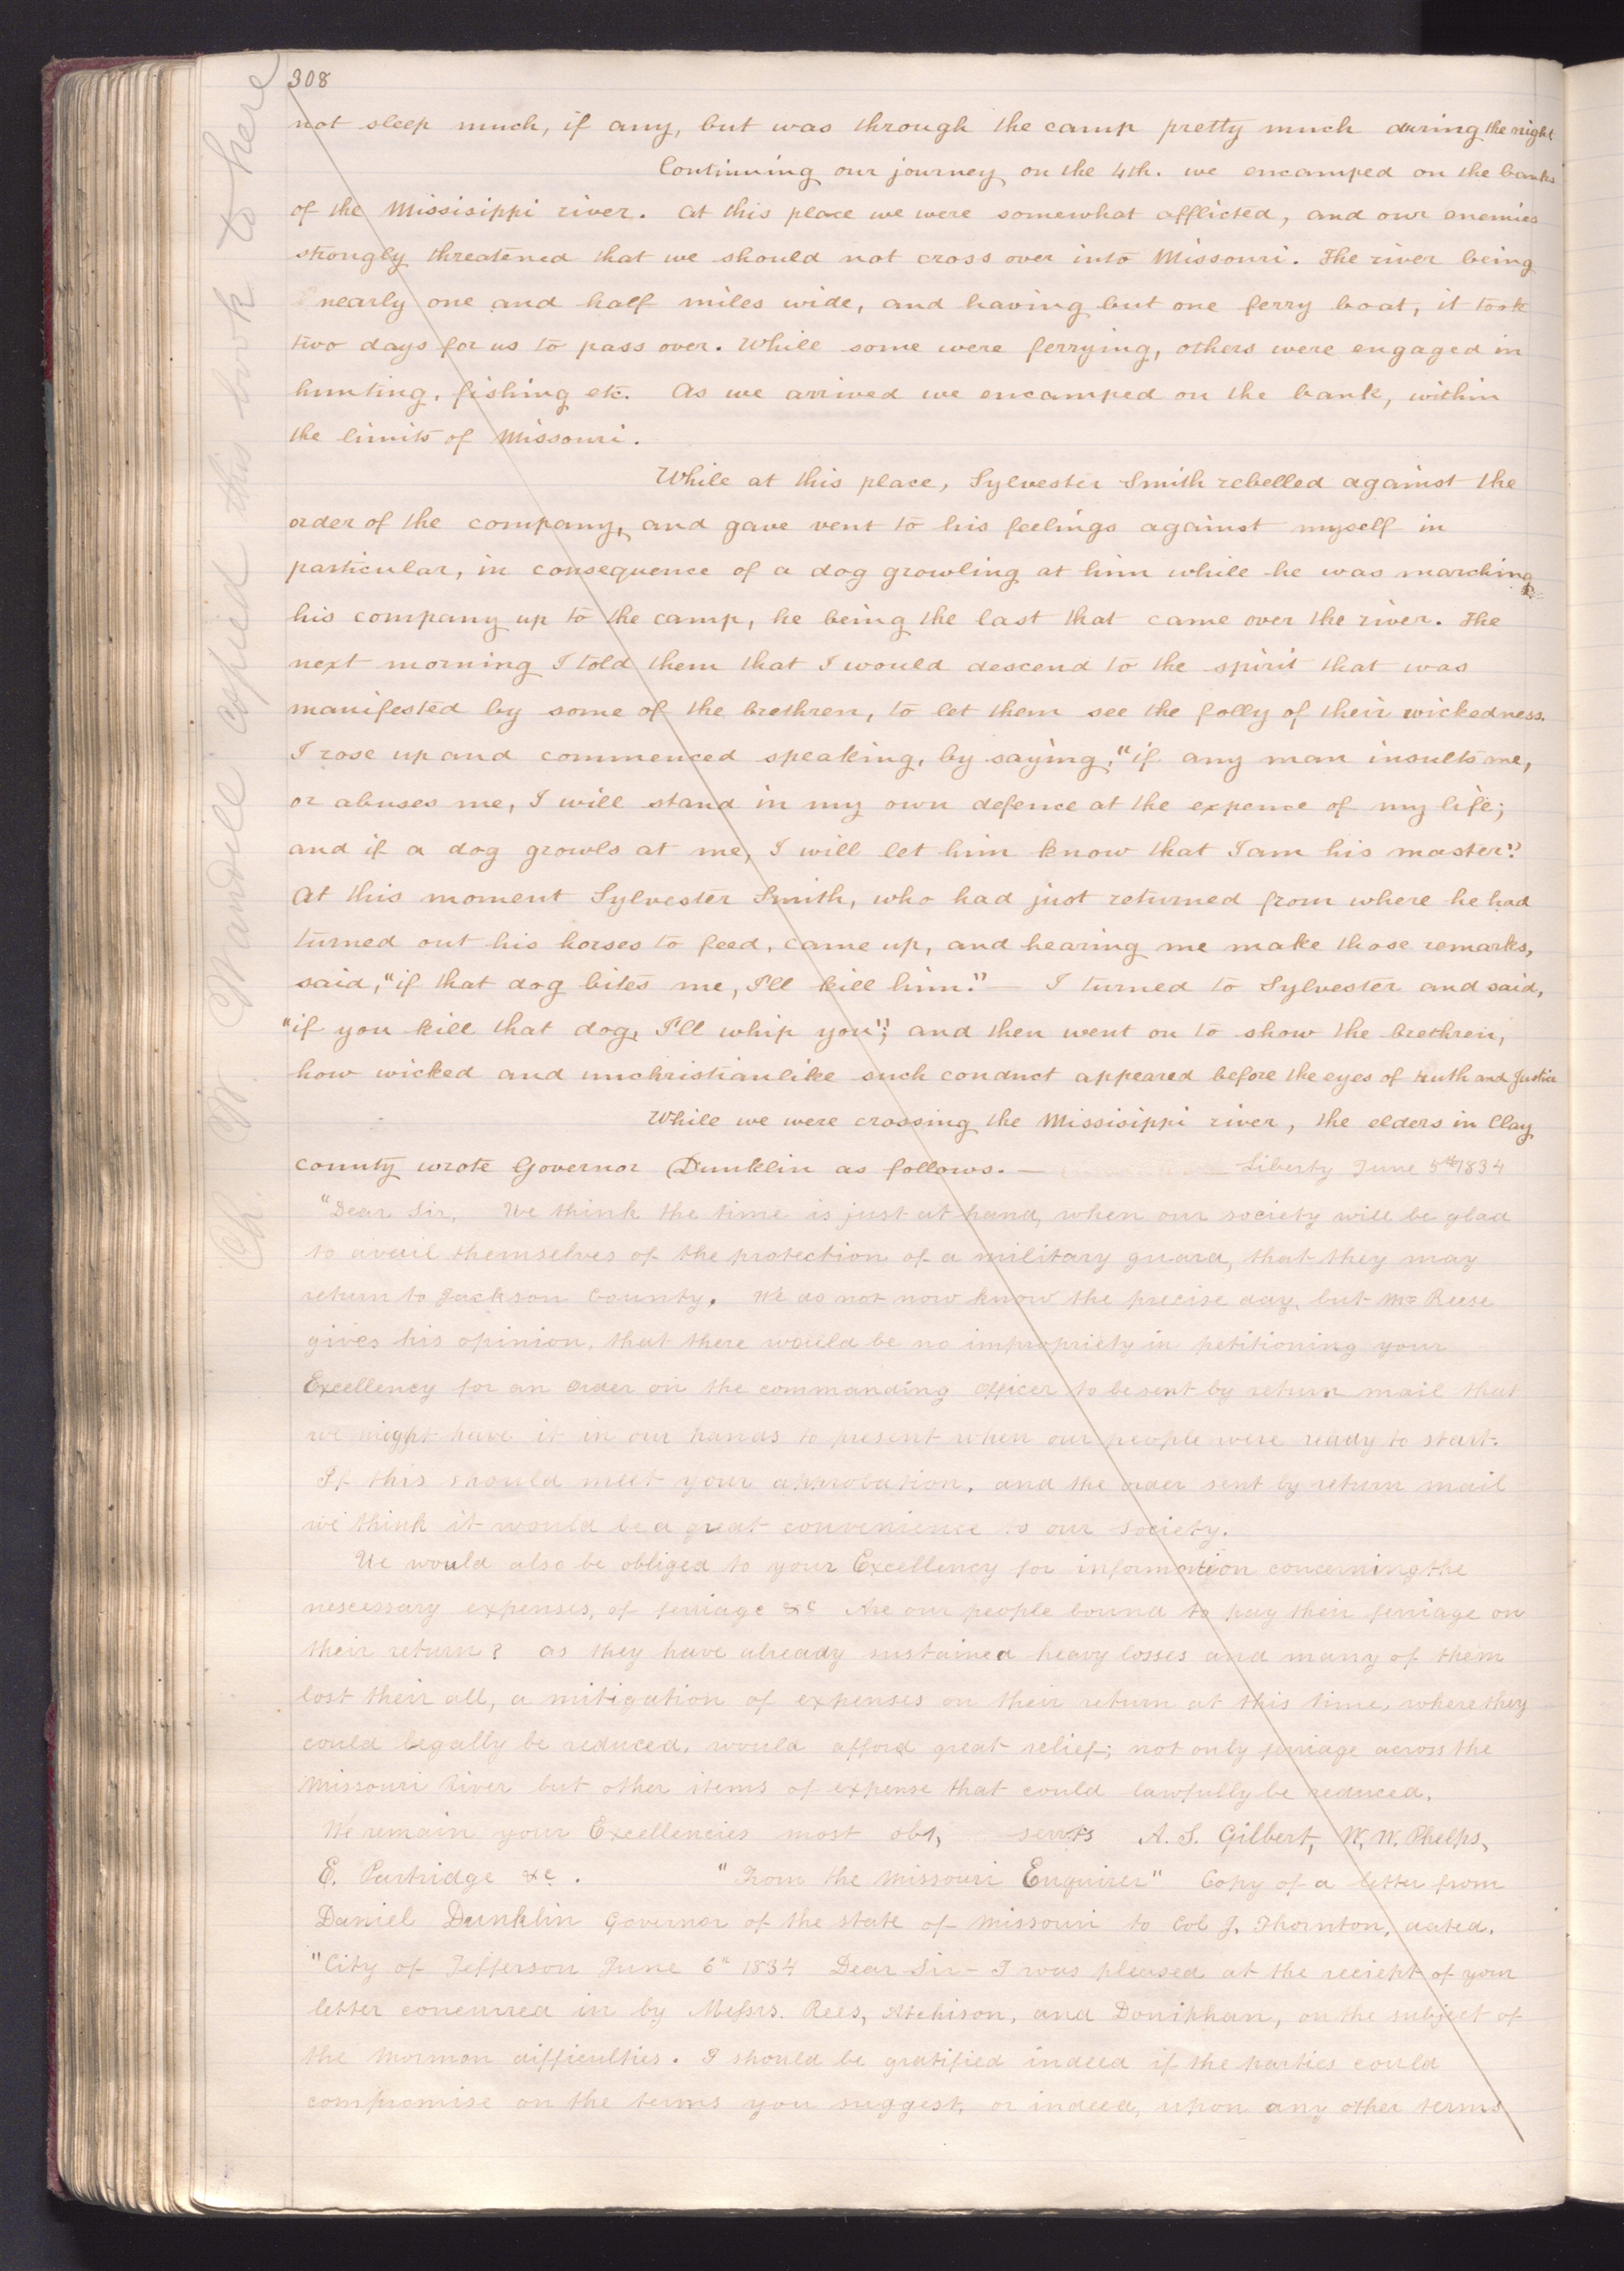 308
not sleep much, if any, but was through the camp pretty much during the night
Continuing our journey on the 4th. we encamped on the banks
of the Missisippi river. At this place we were somewhat afflicted, and our enemies
strongly threatened that we should not cross over into Missouri. The river being
nearly one and half miles wide, and having but one ferry boat, it took
two days for us to pass over. While some were ferrying, others were engaged in
hunting, fishing etc. As we arrived we encamped on the bank, within
the limits of Missouri.
While at this place, Sylvester Smith rebelled against the
order of the company, and gave vent to his feelings against myself in
particular, in consequence of a dog growling at him while he was marching
his company up to the camp, he being the last that came over the river. The
next morning I told them that I would descend to the spirit that was
manifested by some of the brethren, to let them see the folly of their wickedness.
I rose up and commenced speaking, by saying, "if any man insults me,
or abuses me, I will stand in my own defence at the expence of my life;
and if a dog growls at me, I will let him know that I am his master."
At this moment Sylvester Smith, who had just returned from where he had
turned out his horses to feed, came up, and hearing me make those remarks,
said, "if that dog bites me, I'll kill him." — I turned to Sylvester and said,
"if you kill that dog, I'll whip you"; and then went on to show the brethren,
how wicked and unchristianlike such conduct appeared before the eyes of truth and Justice
While we were crossing the Missisippi river, the elders in Clay
county wrote Governor Dunklin as follows. — Liberty June 5th 1834
"Dear Sir, We think the time is just at hand, when our society will be glad
to avail themselves of the protection of a military guard, that they may
return to Jackson County. We do not now know the precise day, but Mr Reese
gives his opinion, that there would be no impropriety in petitioning your
Excellency for an order on the commanding officer to be sent by return mail that
we might have it in our hands to present when our people were ready to start.
If this should meet your approbation, and the order sent by return mail
we think it would be a great convenience to our society.
We would also be obliged to your Excellency for information concerning the
nescessary expenses, of ferriage &c Are our people bound to pay their ferriage on
their return? as they have already sustained heavy losses and many of them
lost their all, a mitigation of expenses on their return at this time, where they
could legally be reduced, would afford great relief; not only ferriage across the
Missouri River but other items of expense that could lawfully be reduced.
We remain your Excellencies most obt, servts A. S. Gilbert, W. W. Phelps,
E. Partridge &c. "From the Missouri Enquirer" Copy of a letter from
Daniel Dunklin Governor of the state of Missouri to Col J. Thornton, dated,
"City of Jefferson June 6th 1834 Dear Sir – I was pleased at the reciept of your
letter concurred in by Messrs. Rees, Atchison, and Doniphan, on the subject of
the Mormon difficulties. I should be gratified indeed if the parties could
compromise on the terms you suggest, or indeed, upon any other terms
Ch. W. Wandell copied this book to here